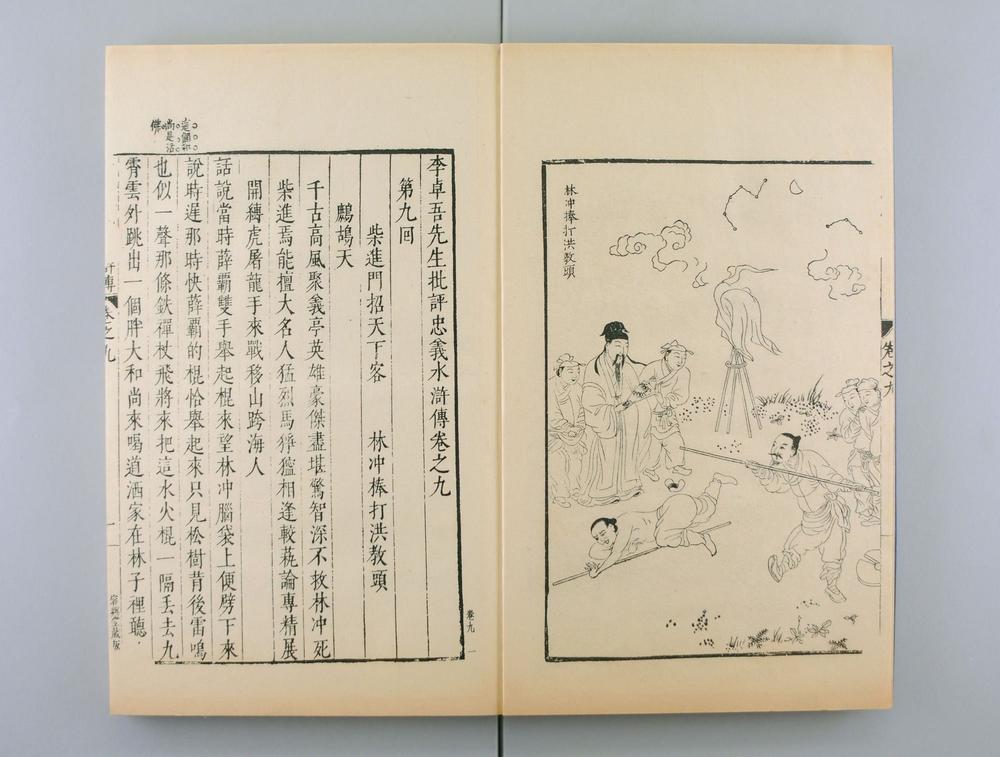 卷之九
林冲棒打洪教頭
卷九 一
李卓吾先生批評忠義水滸傳卷之九
第九回
柴進門招天下客 林冲棒打洪教頭
鷓鴣天
千古高風聚義亭英雄豪傑盡堪驚智深不救林冲死
柴進焉能擅大名人猛烈馬猙獰相逢較蓺論專精展
開縛虎屠龍手來戰移山跨海人
話說當時薛霸雙手舉起棍來望林冲腦袋上便劈下來
說時遲那時快薛霸的棍恰舉起來只見松樹背後雷鳴
也似一聲那條鉄禪杖飛將來把這水火棍一隔丢去九
霄雲外跳出一個胖大和尚來喝道洒家在林子裡聽
這個和
尚是活
佛
卷之九
一
容與堂藏版